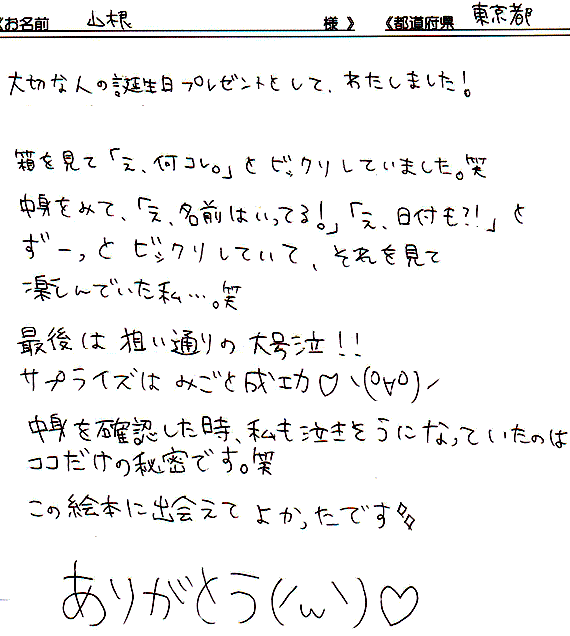 《お名前 山根 様 》 《都道府県 東京都
大切な人の誕生日プレゼントとして、わたしました!
箱を見て「え、何コレ。」とビックリしていました。笑
中身をみて、「え、名前はいってる!」「え、日付も?!」と
ずーっとビックリしていて、それを見て
楽しんでいた私…。笑
最後は狙い通りの大号泣!!
サプライズはみごと成功♡ヽ(°∀°)ノ
中身を確認した時、私も泣きそうになっていたのは
ココだけの秘密です。笑
この絵本に出会えてよかったです
ありがとう(ノω丶)♡